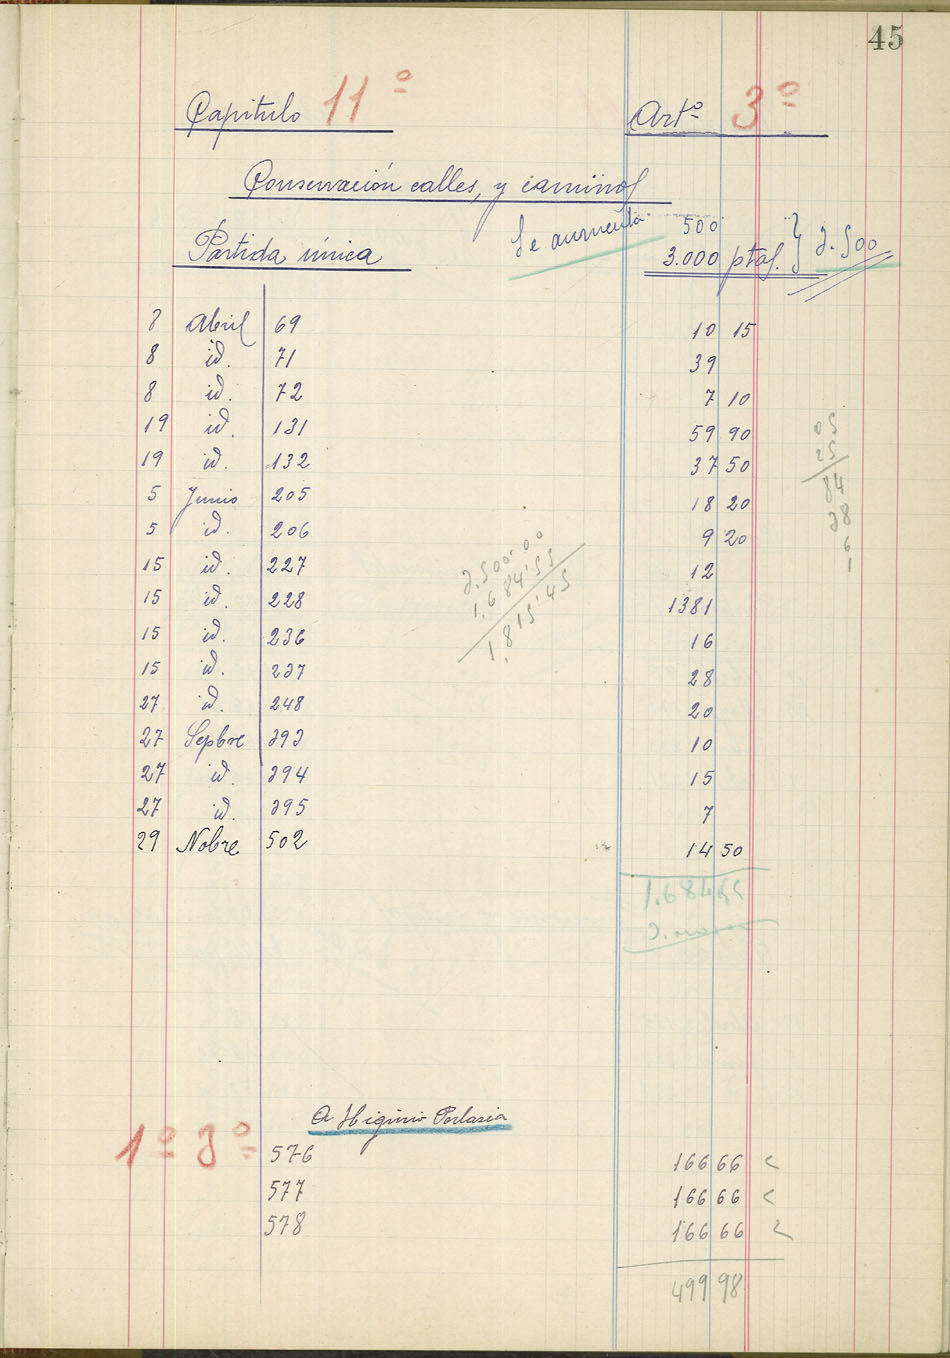 45
Capitulo 11º Artº 3º
Conservación calles, y caminos
Se aumenta 500
Partida única 3.000 ptas. } 3.500
8 Abril 69 10 15
8 id. 71 39
8 id. 72 7 10
19 id. 131 59 90
19 id. 132 37 50
5 Junio 205 18 20
5 id. 206 9 20
15 id. 227 12
15 id. 228 1381
15 id. 236 16
15 id. 237 28
27 id. 248 20
27 Sepbre 393 10
27 id. 394 15
27 id. 395 7
29 Nobre 502 14 50
1.684 55
05
25
84
28
6
1
3.500'00
1.684'55
1.815'45
A Higinio
1º 3º
576 166 66
577 166 66
578 166 66
499 98